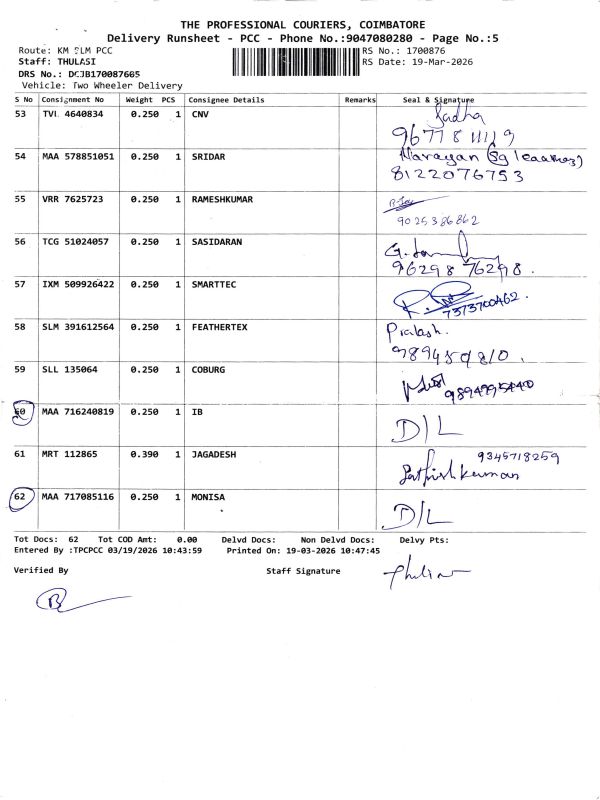 THE PROFESSIONAL COURIERS, COIMBATORE
Delivery Runsheet - PCC - Phone No.:9047080280 - Page No.:5
Route: KM SLM PCC RS No.: 1700876
Staff: THULASI RS Date: 19-Mar-2026
DRS No.: DCJB170087665
Vehicle: Two Wheeler Delivery
S No Consignment No Weight PCS Consignee Details Remarks Seal & Signature
53 TVL 4640834 0.250 1 CNV
54 MAA 578851051 0.250 1 SRIDAR Narayan
8122076753
55 VRR 7625723 0.250 1 RAMESHKUMAR
9025386862
56 TCG 51024057 0.250 1 SASIDARAN
96298 76298.
57 IXM 509926422 0.250 1 SMARTTEC
7373700462.
58 SLM 391612564 0.250 1 FEATHERTEX Prakash.
59 SLL 135064 0.250 1 COBURG
9894995440
60 MAA 716240819 0.250 1 IB D/L
61 MRT 112865 0.390 1 JAGADESH 9345718259
Sathish kumar
62 MAA 717085116 0.250 1 MONISA D/L
Tot Docs: 62 Tot COD Amt: 0.00 Delvd Docs: Non Delvd Docs: Delvy Pts:
Entered By :TPCPCC 03/19/2026 10:43:59 Printed On: 19-03-2026 10:47:45
Verified By Staff Signature